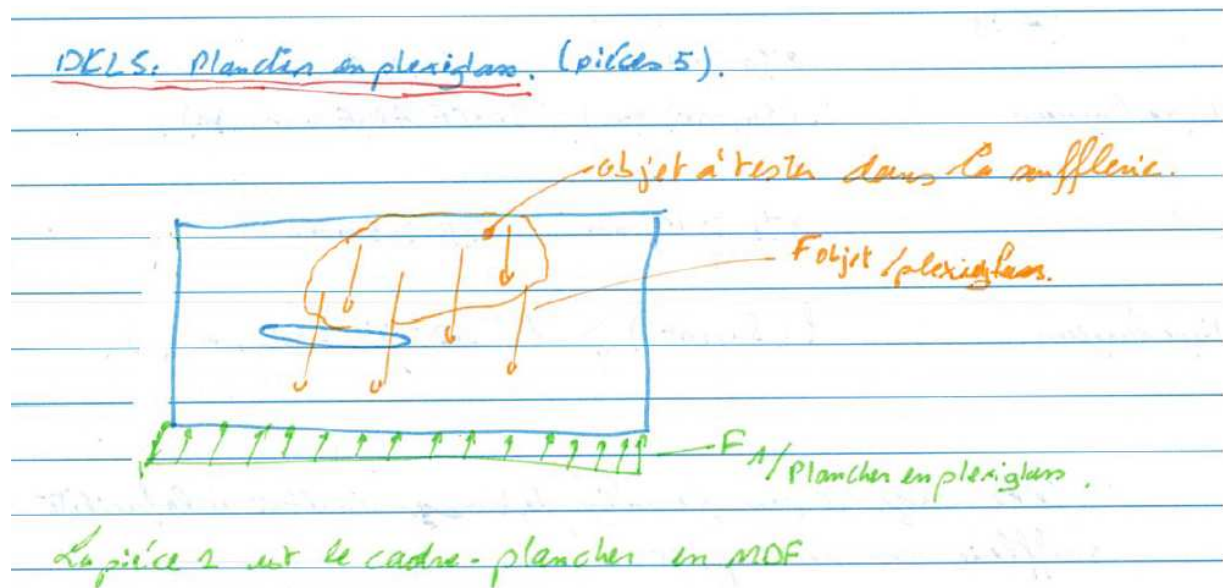 DCLS: Plancher en plexiglass. (pièces 5).
objet à tester dans la soufflerie.
F objet/plexiglass.
F 1/Plancher en plexiglass.
La pièce 1 est le cadre-plancher en MDF